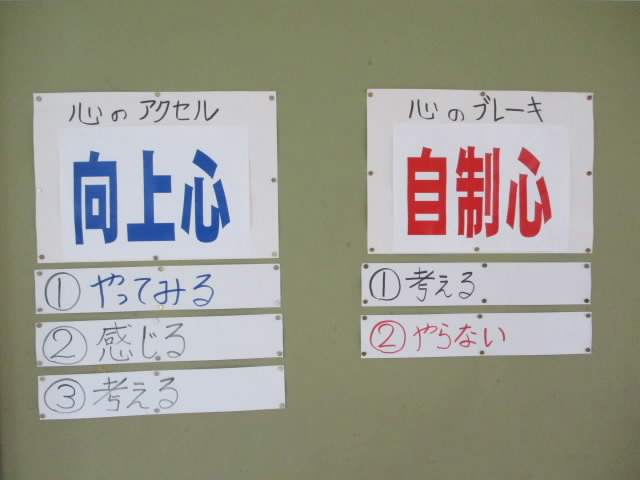 心のアクセル
向上心
①やってみる
②感じる
③考える
心のブレーキ
自制心
①考える
②やらない